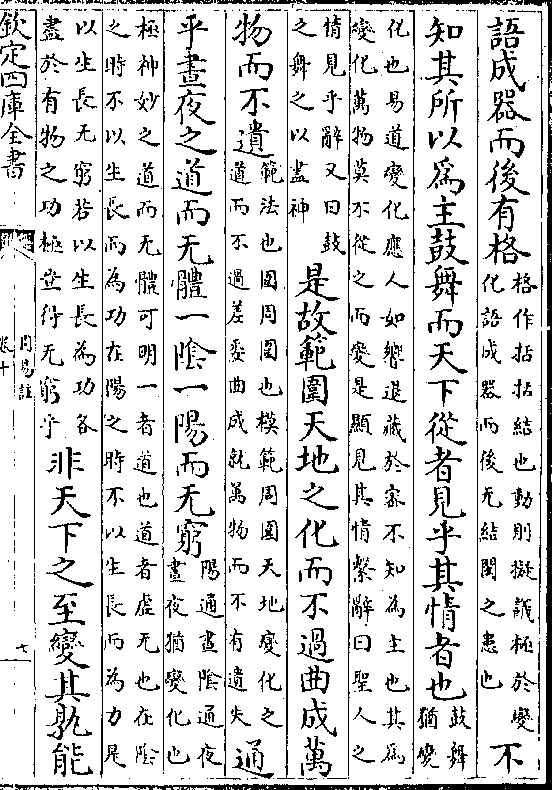 語成器而後有格格作括括結也動則擬議極於變化語成器而後无結閡之患也不
知其所以為主鼓舞而天下從者見乎其情者也鼓舞猶變
化也易道變化應人如響退藏於密不知為主也其為
變化萬物莫不從之而變是顯見其情繫辭曰聖人之
情見乎辭又曰鼓之舞之以盡神是故範圍天地之化而不過曲成萬
物而不遺範法也圍周圍也模範周圍天地變化之道而不過差委曲成就萬物而不有遺失通
乎晝夜之道而无體一陰一陽而无窮陽通晝陰通夜晝夜猶變化也
極神妙之道而无體可明一者道也道者虛无也在陰
之時不以生長而為功在陽之時不以生長而為力是
以生長无窮若以生長為功各盡於有物之功極豈得无窮乎非天下之至變其孰能
欽定四庫全書
周易註
卷十
七